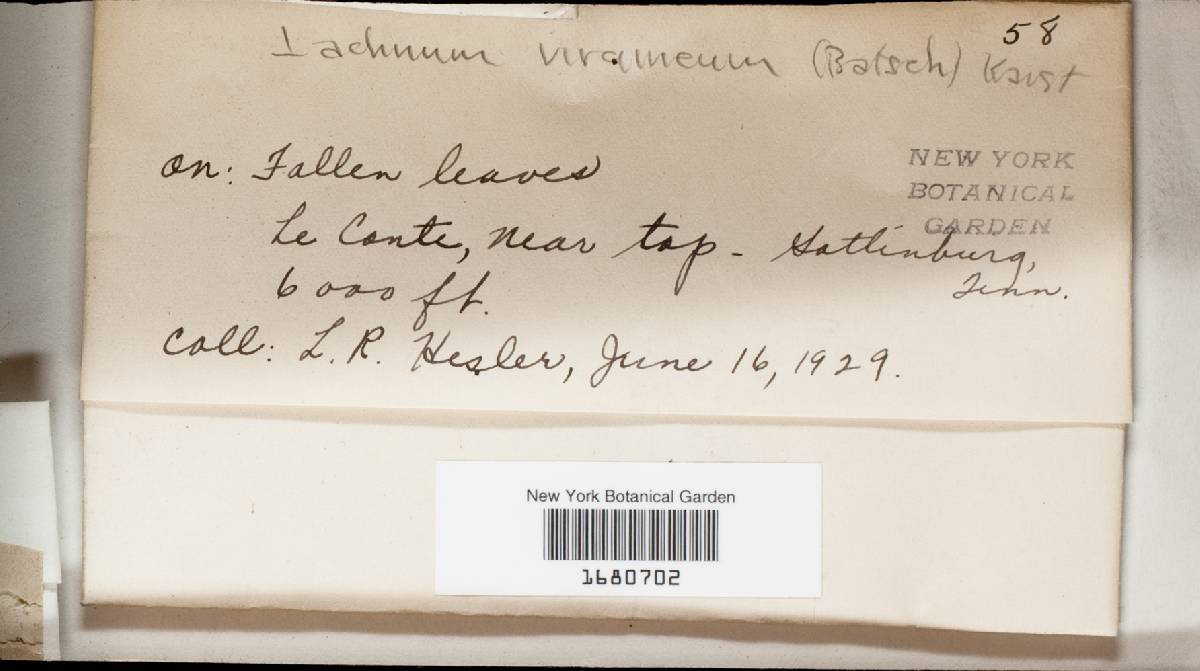 58
Lachnum virgineum (Batsch) Karst
on: Fallen leaves
Le Conte, near top - Gatlinburg,
Tenn.
6000 ft.
Coll: L. R. Hesler, June 16, 1929.
NEW YORK
BOTANICAL
GARDEN
New York Botanical Garden
1680702